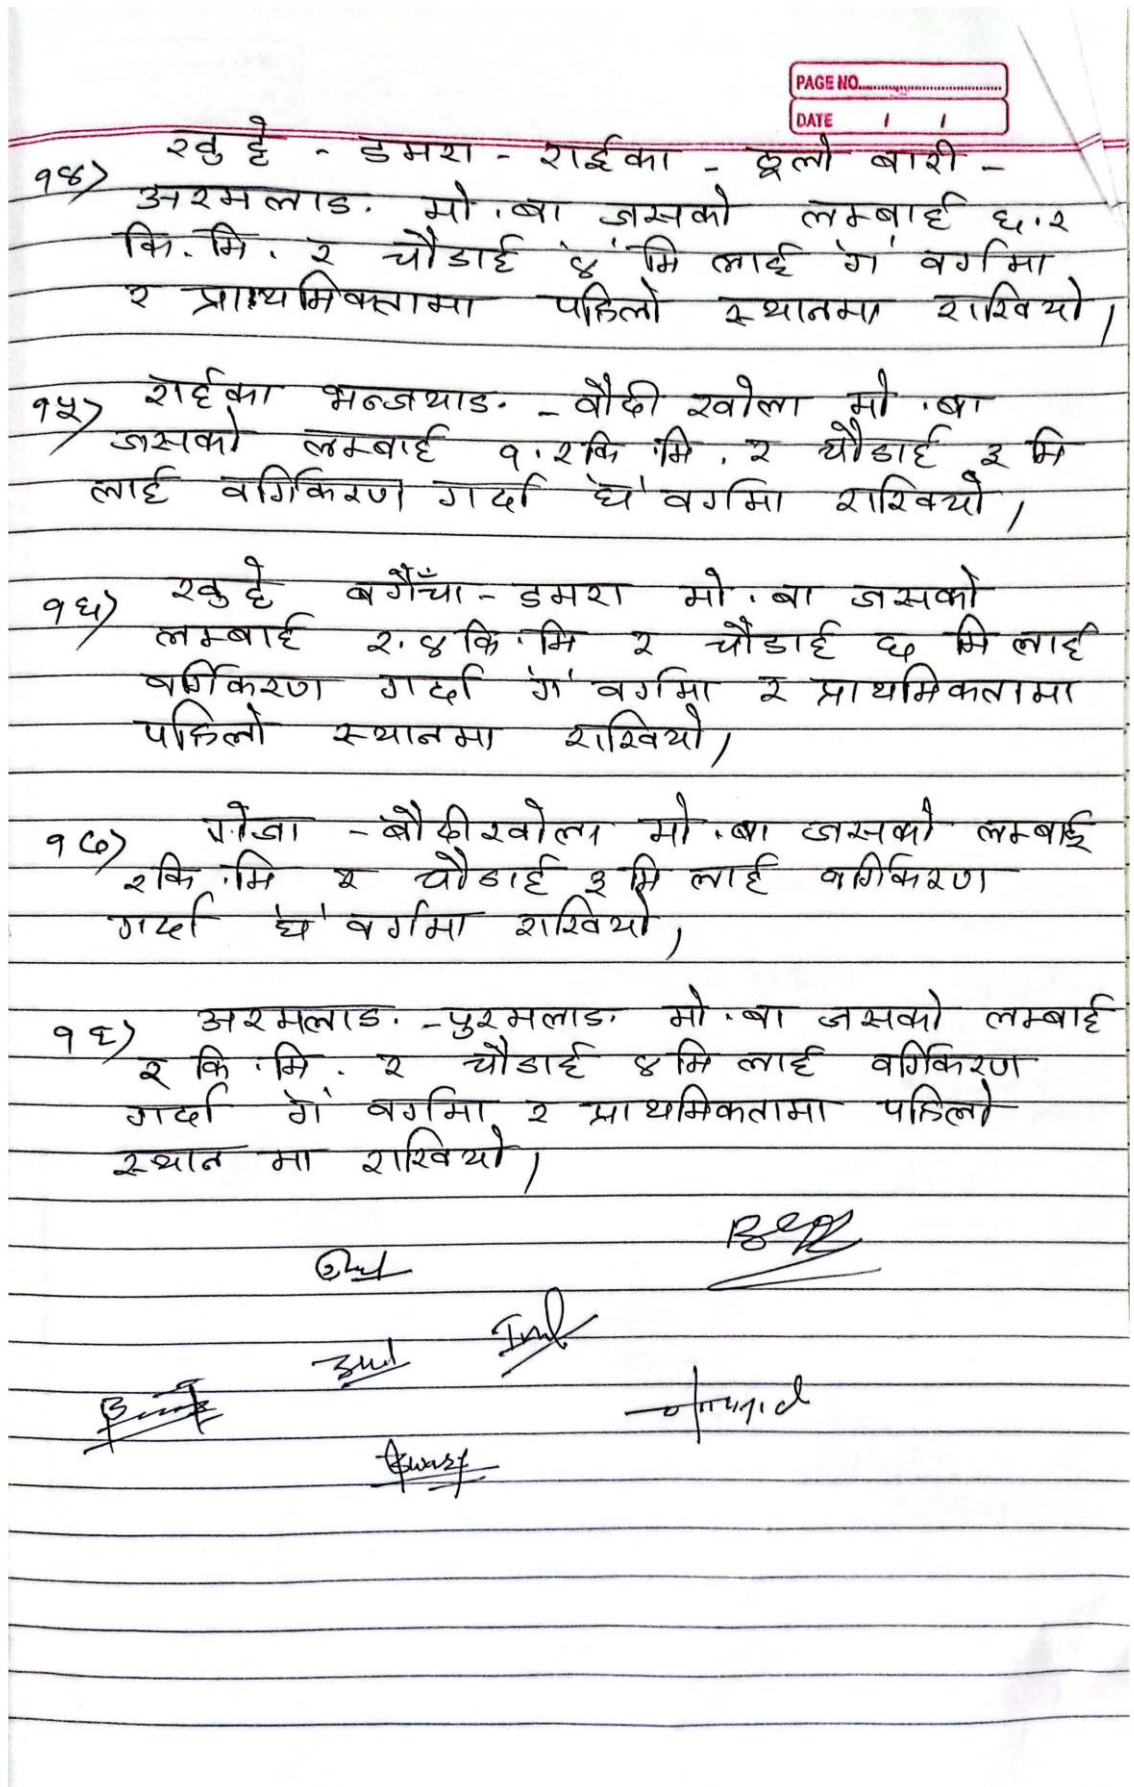 PAGE NO.
DATE / /
१४) खुट्टे - डमरा - राईका - ठूलो बारी -
अरमलाङ. मो.बा जसको लम्बाई ६.२
कि.मि. र चौडाई ४ मि लाई 'ग' वर्गमा
र प्राथमिकतामा पहिलो स्थानमा राखियो,
१५) राईका भन्जयाङ. - बौदी खोला मो.बा
जसको लम्बाई १.२ कि.मि. र चौडाई ३ मि
लाई वर्गिकरण गर्दा 'घ' वर्गमा राखियो,
१६) खुट्टे बगैँचा - डमरा मो.बा जसको
लम्बाई २.४ कि.मि र चौडाई ६ मि लाई
वर्गिकरण गर्दा 'ग' वर्गमा र प्राथमिकतामा
पहिलो स्थानमा राखियो,
१७) गोजा - बौदीखोला मो.बा जसको लम्बाई
२ कि.मि र चौडाई ३ मि लाई वर्गिकरण
गर्दा 'घ' वर्गमा राखियो,
१८) अरमलाङ. - पुरमलाङ. मो.बा जसको लम्बाई
२ कि.मि. र चौडाई ४ मि लाई वर्गिकरण
गर्दा 'ग' वर्गमा र प्राथमिकतामा पहिलो
स्थान मा राखियो,